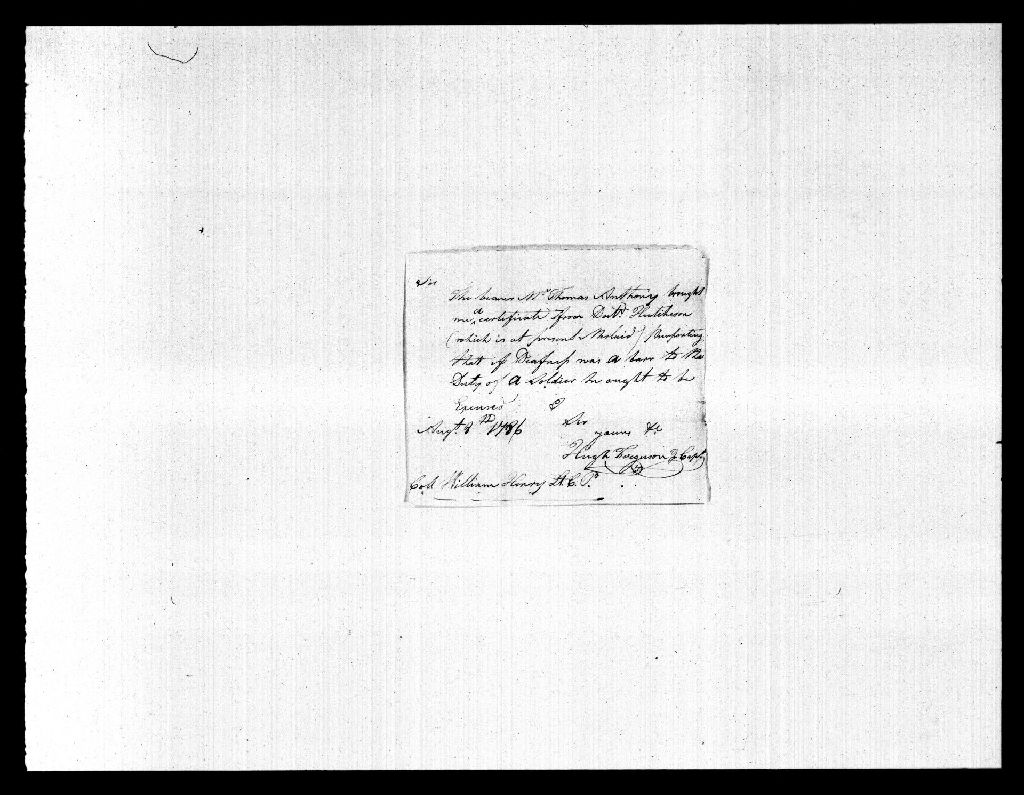 Sir
The bearer Mr. Thomas Anthony brought
me a certificate from Doctr. Hutcheson
(which is at present Mislaid) Purporting
that if Deafness was a barr to the
Duty of a Soldier he ought to be
Excused
Augt. 8th 1786
Sir
yours &c
Hugh Ferguson Capt
Coll William Henry Lt. C. P.